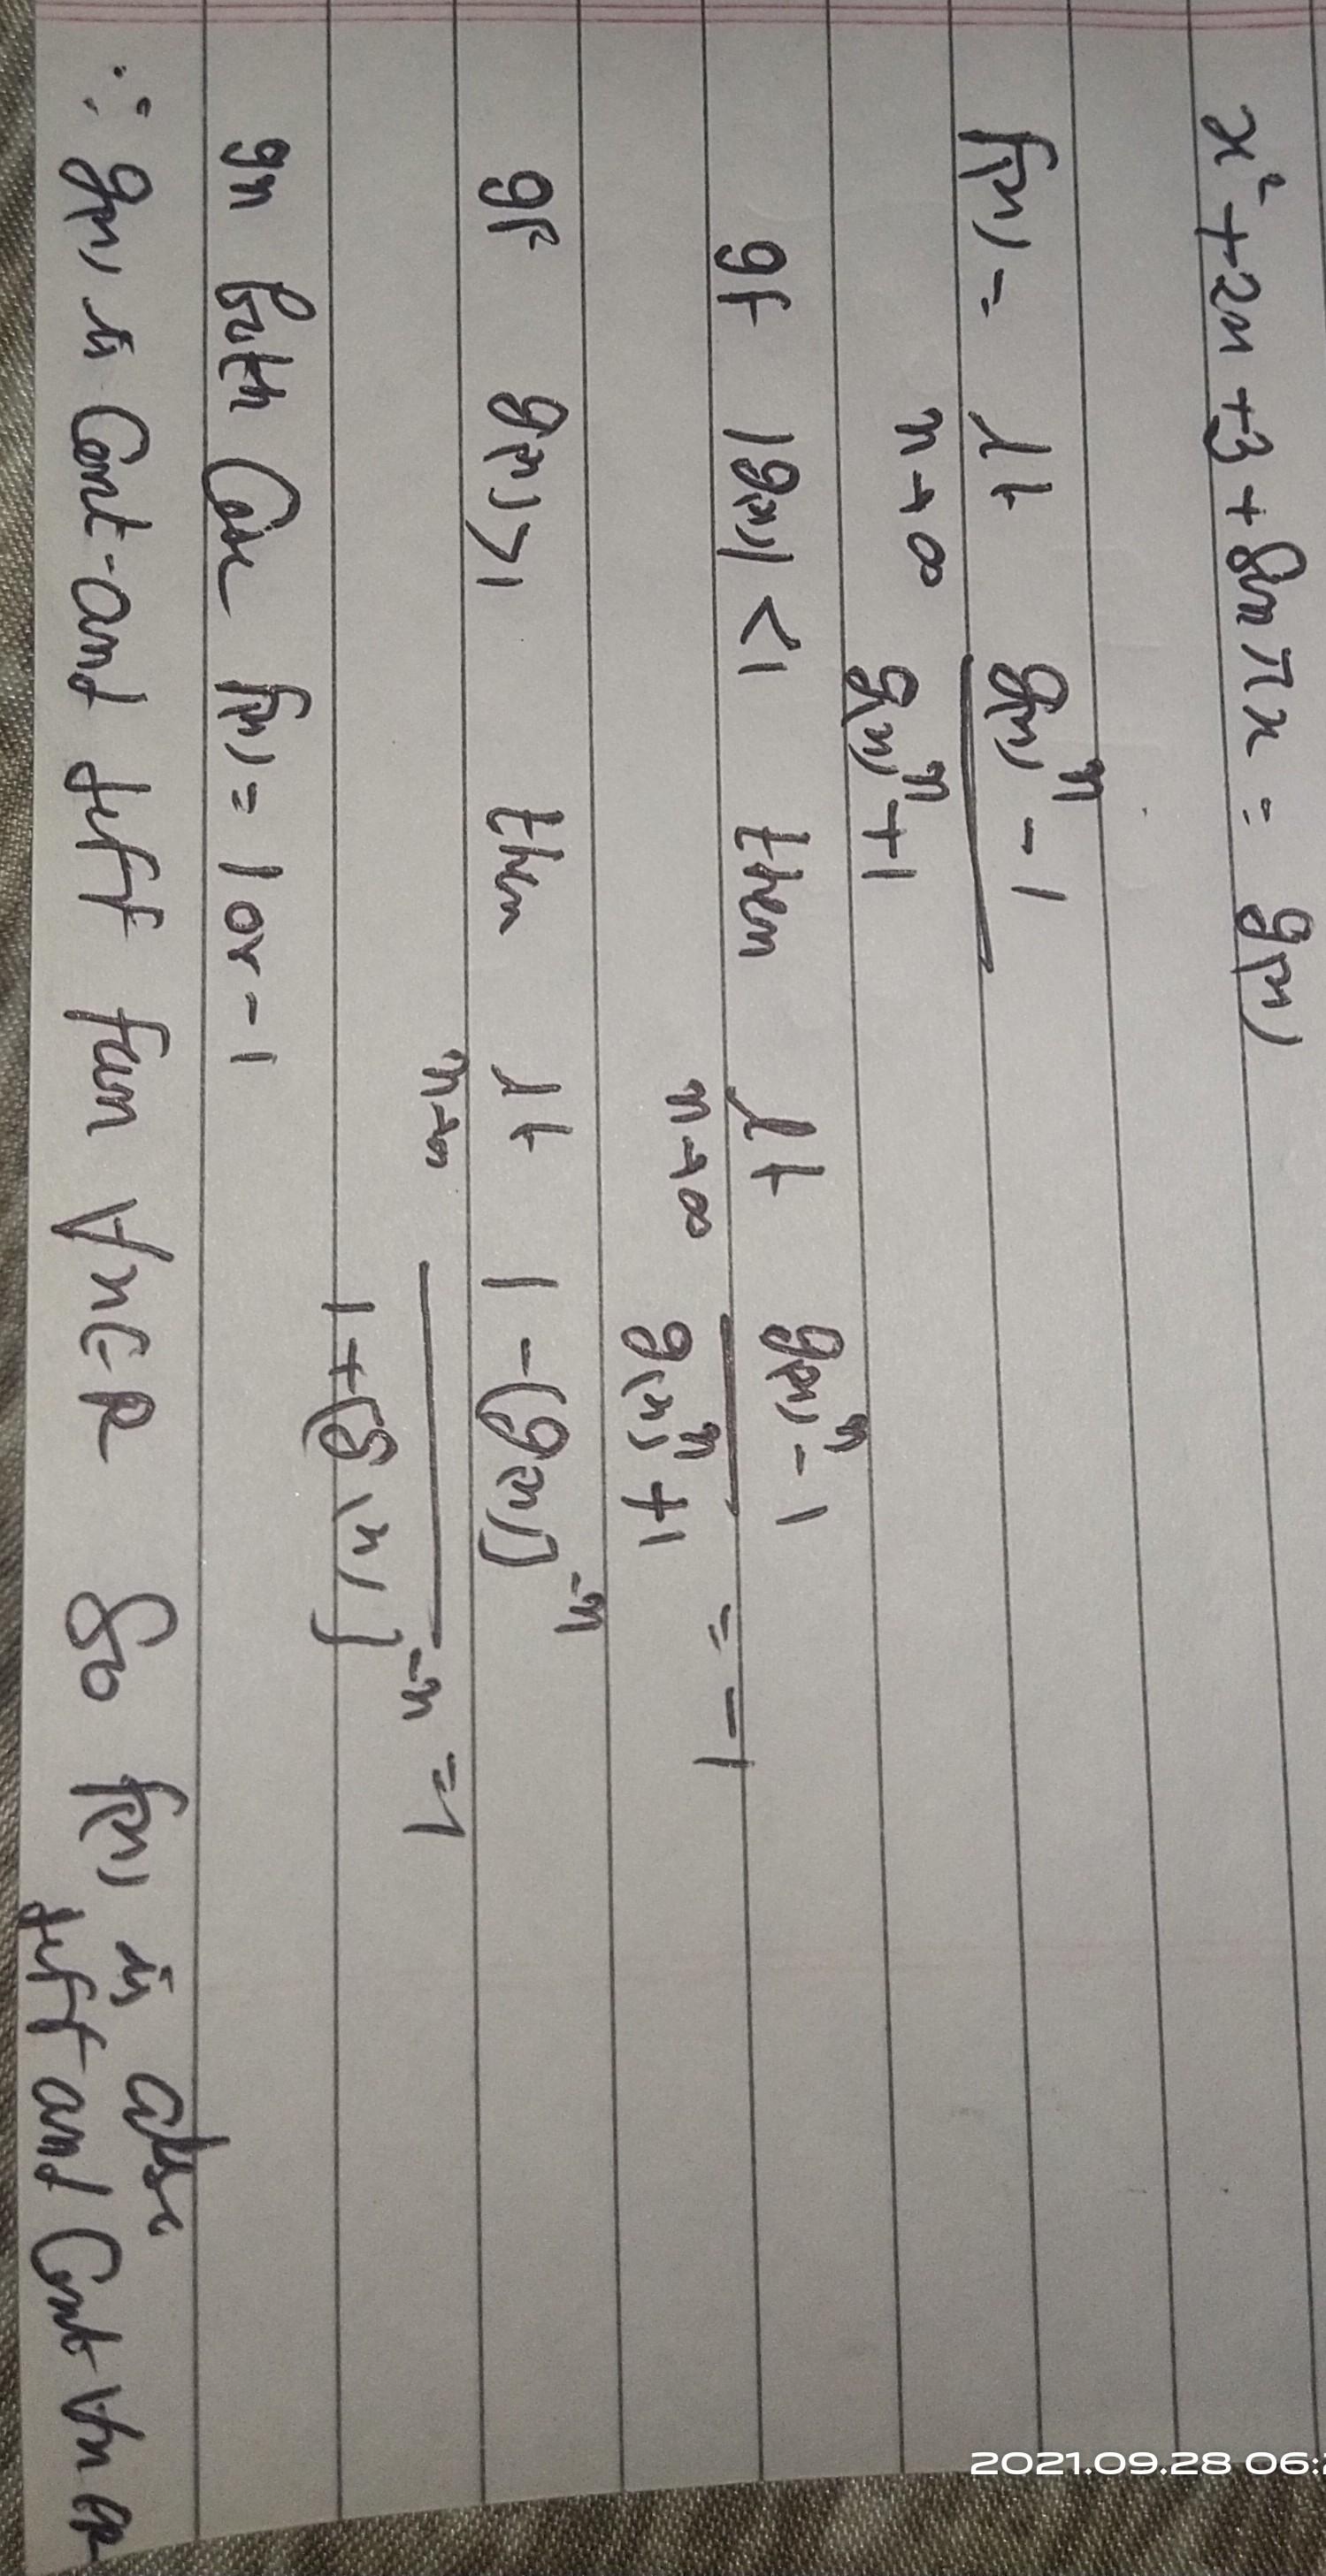 x² + 2x + 3 + sin πx = g(x)
f(x) = lt n→∞ g(x)ⁿ - 1 / g(x)ⁿ + 1
If |g(x)| < 1 then lt n→∞ g(x)ⁿ - 1 / g(x)ⁿ + 1 = -1
If g(x) > 1 then lt n→∞ 1 - (g(x))⁻ⁿ / 1 + (g(x))⁻ⁿ = 1
In both Case f(x) = 1 or -1
∴ g(x) is Cont. and diff fun ∀x∈R So f(x) is also
diff and Cont ∀x R
2021.09.28 06: